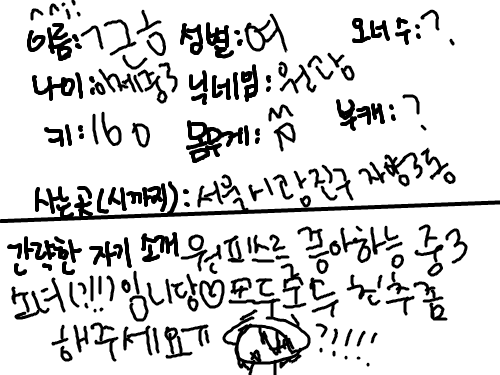 ^^;;
이름:ㄱ근흥 성별:여 오너수:?
나이:이제중3 닉네임:원당
키:160 몸무게: 부캐:?
사는곳(시까지):서울시광진구 자양3동
간략한 자기 소개 원피스를 쫑아하능 중3
소녀(?!!)임니당♡모두모두 친추쫌
해주세요ㅠ ??!!!